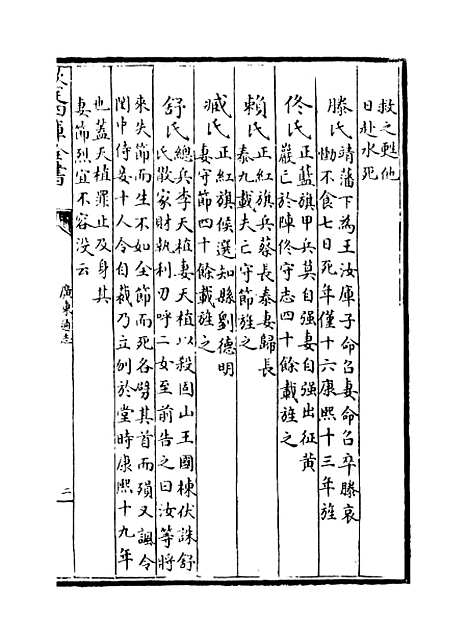 救之甦他
日赴水死
滕氏靖藩下為王汝庫子命召妻命召卒滕哀
慟不食七日死年僅十六康熙十三年旌
佟氏正藍旗甲兵莫自强妻自强出征黄
巖亡於陣佟守志四十餘載旌之
賴氏正紅旗兵蔡長泰妻歸長
泰九載夫亡守節旌之
臧氏正紅旗候選知縣劉德明
妻守節四十餘載旌之
舒氏總兵李天植妻天植以殺固山王國棟伏誅舒
氏散家財執利刃呼二女至前告之曰汝等將
來失節而生不如全節而死各劈其首而殞又諷令
閨中侍妾十人令自裁乃立刎於堂時康熙十九年
也蓋天植罪止及身其
妻節烈宜不容没云
欽定四庫全書
廣東通志
二